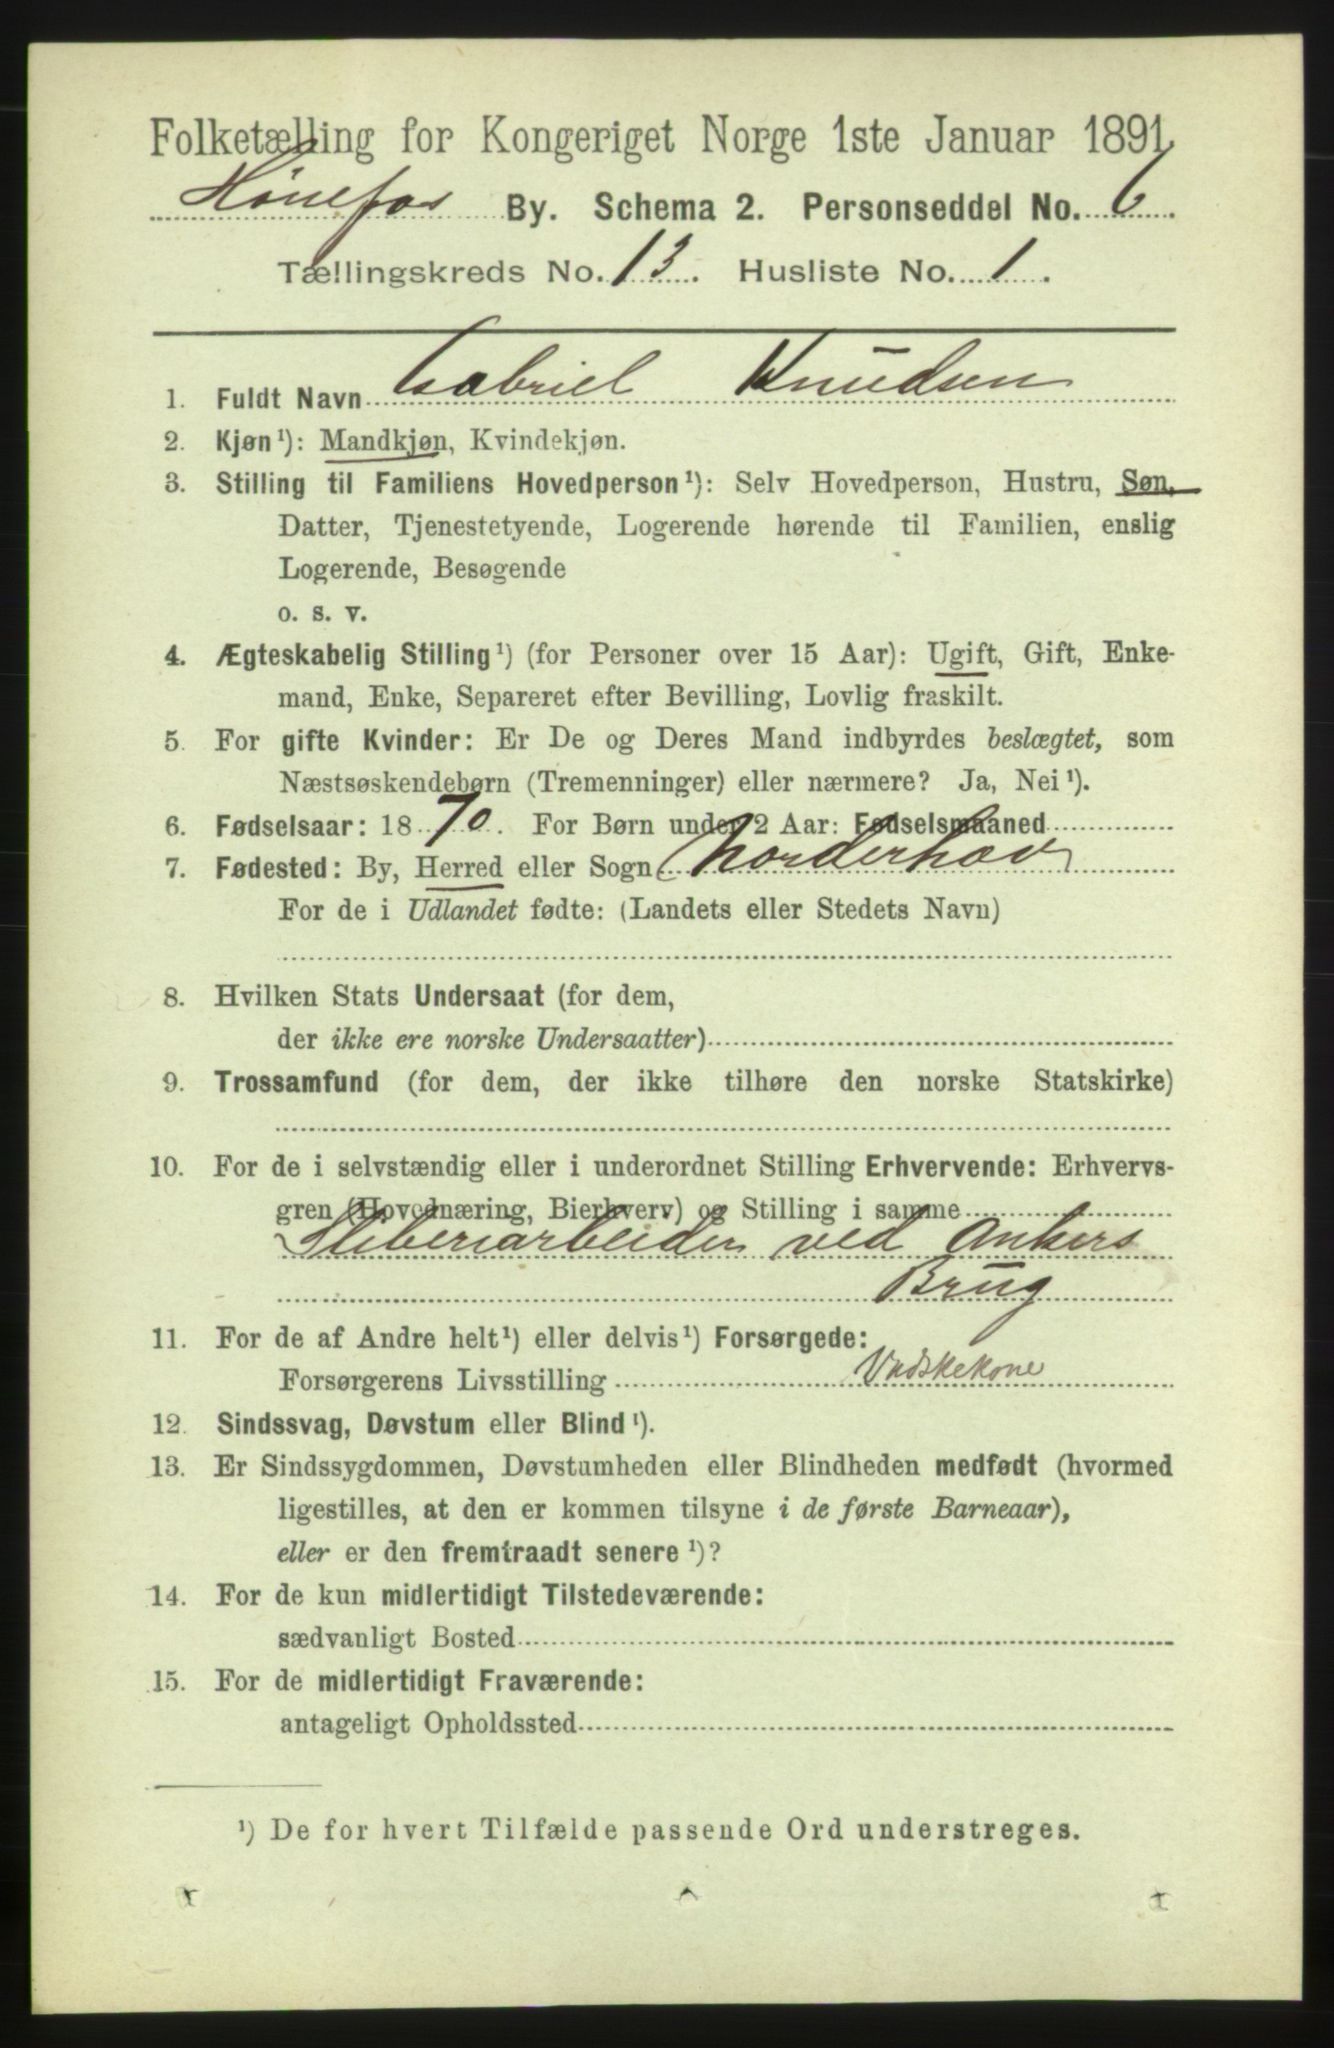 Folketælling for Kongeriget Norge 1ste Januar 1891.
Hønefos By. Schema 2. Personseddel No. 6.
Tællingskreds No. 13. Husliste No. 1.
1. Fuldt Navn Gabriel Knudsen
2. Kjøn ¹): Mandkjøn, Kvindekjøn.
3. Stilling til Familiens Hovedperson ¹): Selv Hovedperson, Hustru, Søn,
Datter, Tjenestetyende, Logerende hørende til Familien, enslig
Logerende, Besøgende
o. s. v.
4. Ægteskabelig Stilling ¹) (for Personer over 15 Aar): Ugift, Gift, Enke-
mand, Enke, Separeret efter Bevilling, Lovlig fraskilt.
5. For gifte Kvinder: Er De og Deres Mand indbyrdes beslægtet, som
Næstsøskendebørn (Tremenninger) eller nærmere? Ja, Nei ¹).
6. Fødselsaar: 1870. For Børn under 2 Aar: Fødselsmaaned
7. Fødested: By, Herred eller Sogn Norderhov
For de i Udlandet fødte: (Landets eller Stedets Navn)
8. Hvilken Stats Undersaat (for dem,
der ikke ere norske Undersaatter)
9. Trossamfund (for dem, der ikke tilhøre den norske Statskirke)
10. For de i selvstændig eller i underordnet Stilling Erhvervende: Erhvervs-
gren (Hovednæring, Bierhverv) og Stilling i samme
Sliberiarbeider ved Ankers
Brug
11. For de af Andre helt ¹) eller delvis ¹) Forsørgede:
Forsørgerens Livsstilling Vadskekone
12. Sindssvag, Døvstum eller Blind ¹).
13. Er Sindssygdommen, Døvstumheden eller Blindheden medfødt (hvormed
ligestilles, at den er kommen tilsyne i de første Barneaar),
eller er den fremtraadt senere ¹)?
14. For de kun midlertidigt Tilstedeværende:
sædvanligt Bosted
15. For de midlertidigt Fraværende:
antageligt Opholdssted
¹) De for hvert Tilfælde passende Ord understreges.